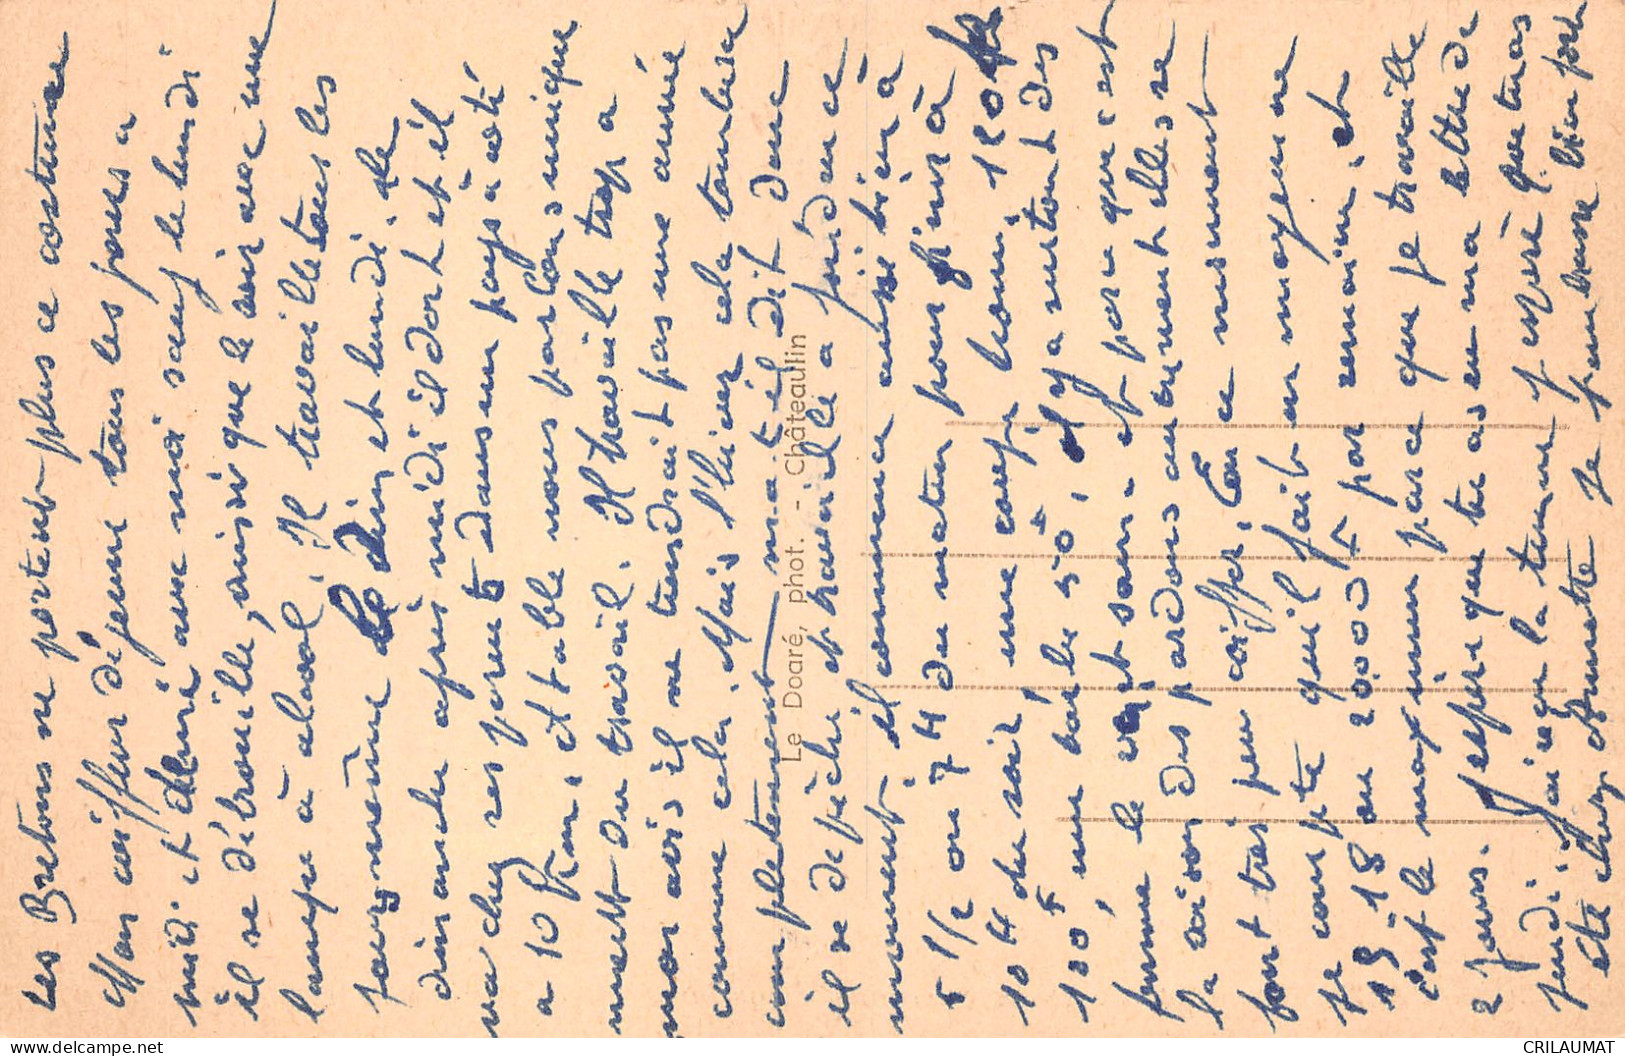 Les Bretons ne portent plus ce costume
Mon coiffeur déjeune tous les jours a
midi et demi avec moi sauf le lundi
il se débrouille, ainsi que le soir avec une
lampe à alcool. Il travaille tous les
jours même le Dim et lundi. Le
dimanche après midi il dort et il
va chez ses parents dans un pays à côté
a 10 Km. et table nous parlons unique
ment du travail. Il travaille trop a
mon avis il ne tiendrait pas une année
comme cela. Mais l'hiver cela tombera
complètement m'a t il dit donc
il se dépêche et travaille a
moment. il commence aussi bien à
5 1/2 ou 7 H du matin pour finir à
10 H du soir une coupe 120 fr
100 F, une barbe 50 F, il y a surtout des
et parce que c'est
la saison des pardons autrement elles se
font très peu coiffer. En ce moment
je compte qu'il fait en moyenne
15 18 ou 20.000 F par semaine, et
c'est le maximum parce que je travaille
2 jours. J'espère que tu as eu ma lettre de
jeudi, j'espère que tu as
été chez Annette je pense bien
Le Doaré, phot. - Châteaulin
CRILAUMAT